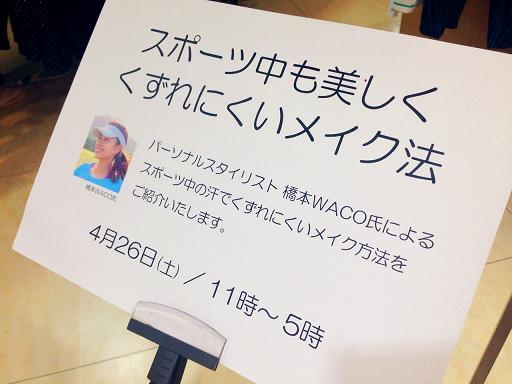 スポーツ中も美しく
くずれにくいメイク法
パーソナルスタイリスト 橋本WACO氏による
スポーツ中の汗でくずれにくいメイク方法を
ご紹介いたします。
橋本WACO氏
4月26日(土)/11時〜5時